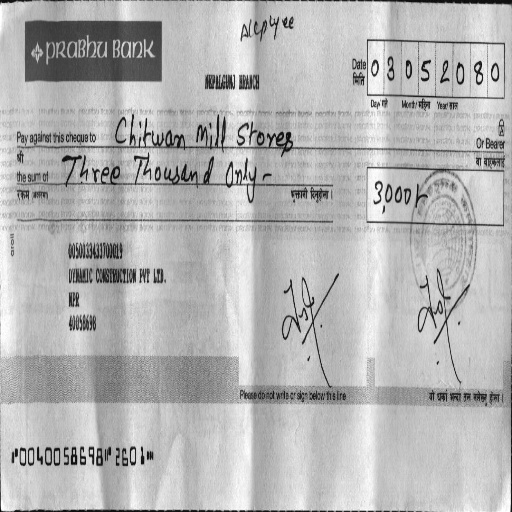 A/c payee
PRABHU BANK
NEPALGUNJ BRANCH
Date
मिति
0 3 0 5 2 0 8 0
Day/ गते Month/ महिना Year/ साल
Pay against this cheque to Chitwan Mill Stores Or Bearer
श्री वा वाहकलाई
the sum of Three Thousand Only-
रकम (अक्षरमा) भुक्तानी दिनुहोला ।
3,000/-
0050033433700019
DYNAMIC CONSTRUCTION PVT LTD.
NPR
40058698
Please do not write or sign below this line
⑈0040058698⑈2601⑈